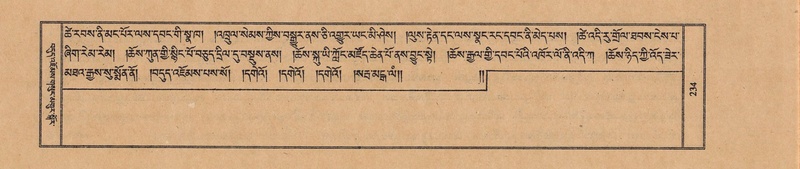 ཚེ་རབས་ནི་མང་པོར་ལས་དབང་གི་སྣ་ཁ། །འཁྲུལ་སེམས་ཀྱིས་བསྒྱུར་ནས་ཅི་འགྱུར་ཡང་མི་ཤེས། །ལུས་རྟེན་དང་ལས་སྣང་རང་དབང་ནི་མེད་པས། །ཚེ་འདི་རུ་གྲོལ་ཐབས་ངེས་པ་
ཞིག་རེམ་རེམ། །ཆོས་ཀུན་གྱི་སྙིང་པོ་བཅུད་དྲིལ་དུ་བསྡུས་ནས། །ཆོས་སྐུ་ཡི་ཀློང་མཛོད་ཆེན་པོ་ནས་བྱུང་སྟེ། །ཆོས་རྒྱལ་གྱི་དབང་པོའི་འཁོར་ལོ་ནི་འདི་ཀ །ཆོས་ཉིད་ཀྱི་འོད་ཟེར་
མཐའ་རྒྱས་སུ་སྨོན་ནོ། །བདུད་འཇོམས་པས་སོ། །དགེའོ། །དགེའོ། །དགེའོ། །སརྦ་མངྒ་ལཾ།། །།
234